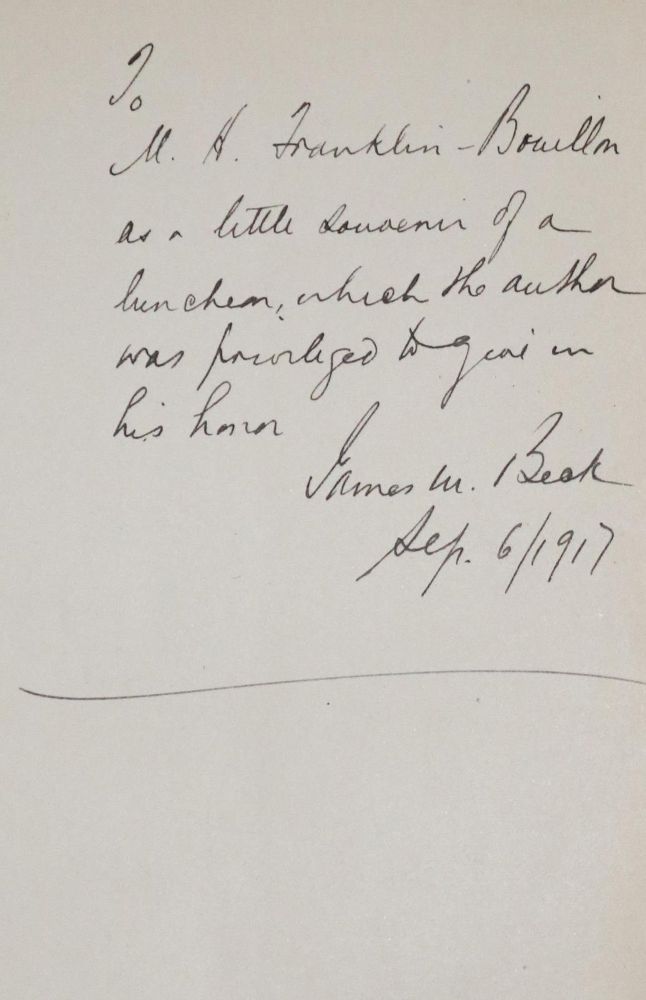 To
M. H. Franklin-Bouillon
as a little souvenir of a
luncheon, which the author
was privileged to give in
his honor
James M. Beck
Sep. 6/1917